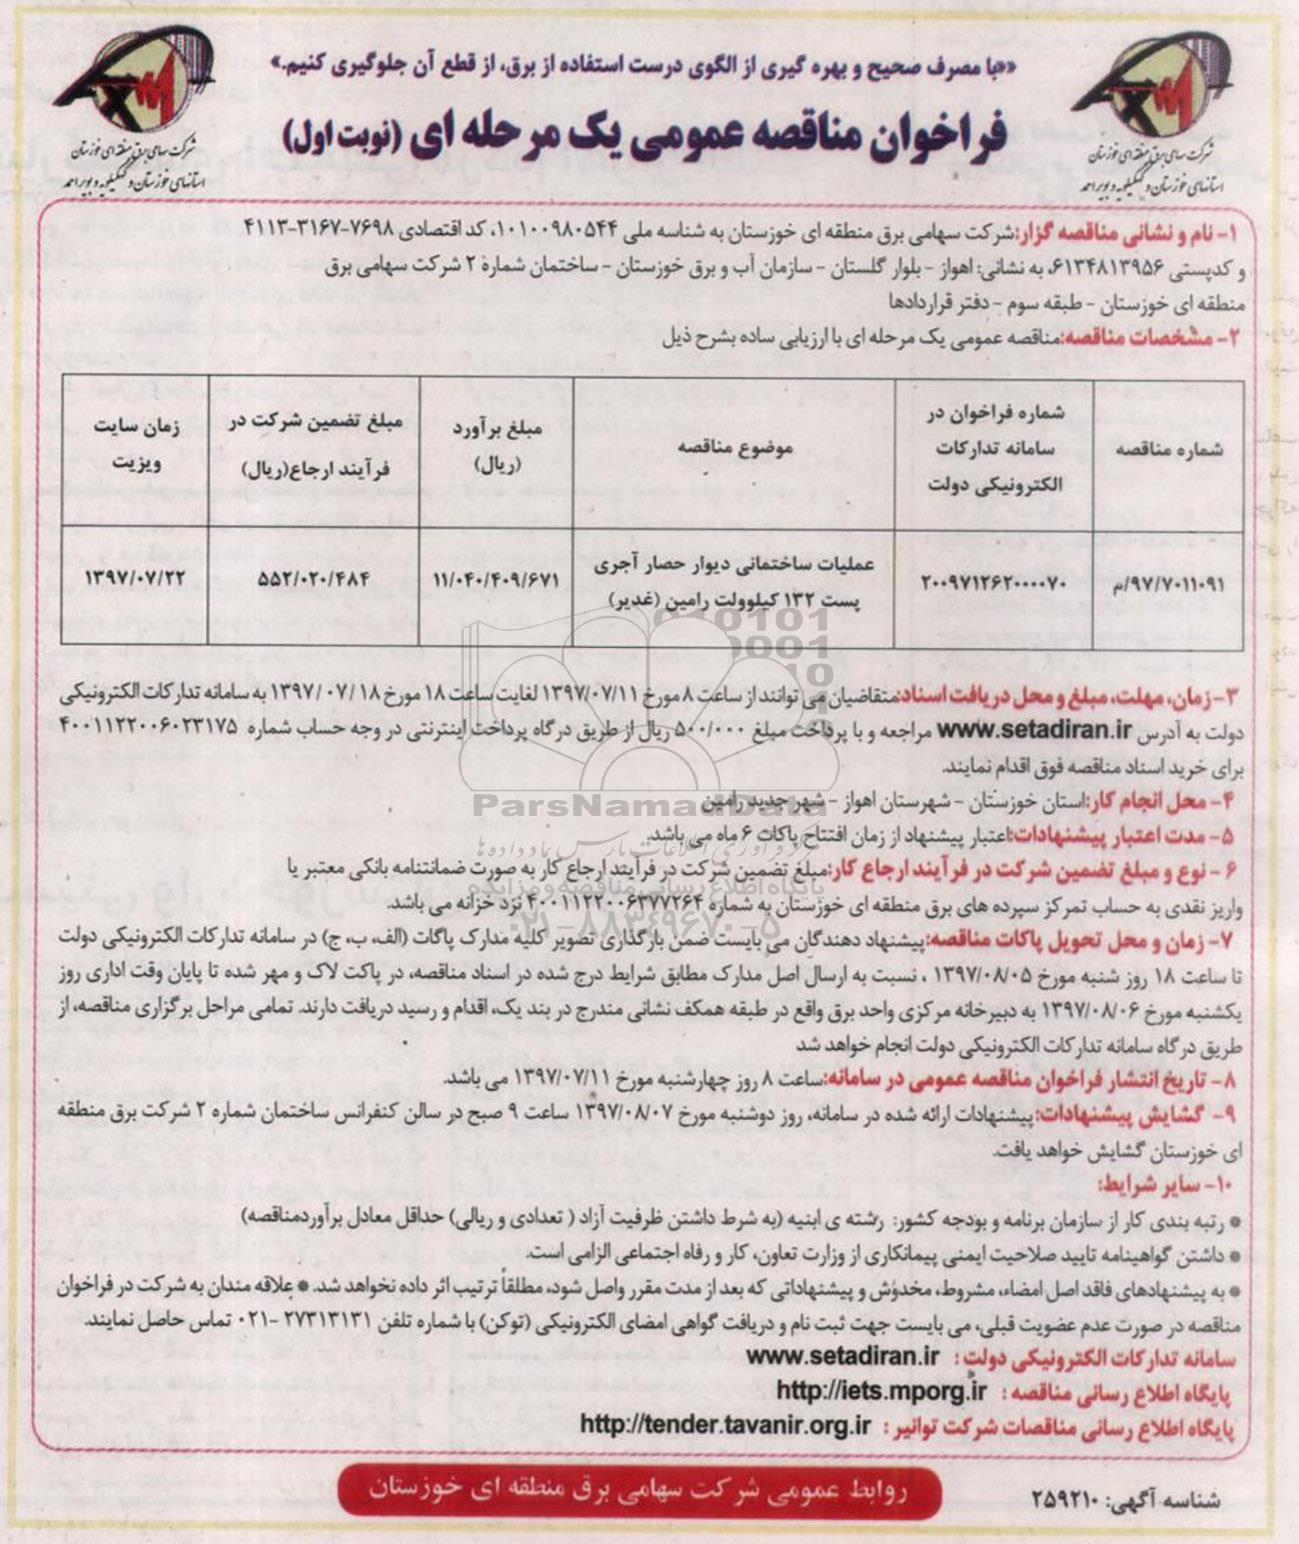 ««با مصرف صحیح و بهره گیری از الگوی درست استفاده از برق، از قطع آن جلوگیری کنیم.»
فراخوان مناقصه عمومی یک مرحله ای (نوبت اول)
شرکت سهامی برق منطقه ای خوزستان
استانهای خوزستان و کهگیلویه و بویراحمد
شرکت سهامی برق منطقه ای خوزستان
استانهای خوزستان و کهگیلویه و بویراحمد
۱- نام و نشانی مناقصه گزار:شرکت سهامی برق منطقه ای خوزستان به شناسه ملی ۱۰۱۰۰۹۸۰۵۴۴، کد اقتصادی ۷۶۹۸-۳۱۶۷-۴۱۱۳
و کدپستی ۶۱۳۴۸۱۳۹۵۶، به نشانی: اهواز - بلوار گلستان - سازمان آب و برق خوزستان - ساختمان شماره ۲ شرکت سهامی برق
منطقه ای خوزستان - طبقه سوم - دفتر قراردادها
۲- مشخصات مناقصه:مناقصه عمومی یک مرحله ای با ارزیابی ساده بشرح ذیل
شماره مناقصه
شماره فراخوان در
سامانه تدارکات
الکترونیکی دولت
موضوع مناقصه
مبلغ برآورد
(ریال)
مبلغ تضمین شرکت در
فرآیند ارجاع(ریال)
زمان سایت
ویزیت
۹۷/۷۰۱۱۰۹۱/م
۲۰۰۹۷۱۲۶۲۰۰۰۰۷۰
عملیات ساختمانی دیوار حصار آجری
پست ۱۳۲ کیلوولت رامین (غدیر)
۱۱/۰۴۰/۴۰۹/۶۷۱
۵۵۲/۰۲۰/۴۸۴
۱۳۹۷/۰۷/۲۲
۳- زمان، مهلت، مبلغ و محل دریافت اسناد:متقاضیان می توانند از ساعت ۸ مورخ ۱۳۹۷/۰۷/۱۱ لغایت ساعت ۱۸ مورخ ۱۳۹۷/۰۷/۱۸ به سامانه تدارکات الکترونیکی
دولت به آدرس www.setadiran.ir مراجعه و با پرداخت مبلغ ۵۰۰/۰۰۰ ریال از طریق درگاه پرداخت اینترنتی در وجه حساب شماره ۴۰۰۱۱۲۲۰۰۶۰۲۳۱۷۵
برای خرید اسناد مناقصه فوق اقدام نمایند.
۴- محل انجام کار:استان خوزستان - شهرستان اهواز - شهر جدید رامین
ParsNamadData
۵- مدت اعتبار پیشنهادات:اعتبار پیشنهاد از زمان افتتاح پاکات ۶ ماه می باشد.
۶ - نوع و مبلغ تضمین شرکت در فرآیند ارجاع کار:مبلغ تضمین شرکت در فرآیند ارجاع کار به صورت ضمانتنامه بانکی معتبر یا
پایگاه اطلاع رسانی مناقصه و مزایده
واریز نقدی به حساب تمرکز سپرده های برق منطقه ای خوزستان به شماره ۴۰۰۱۱۲۲۰۰۶۳۷۷۲۶۴ نزد خزانه می باشد.
۰۲۱-۸۸۳۴۹۶۷۰-۵
۷- زمان و محل تحویل پاکات مناقصه:پیشنهاد دهندگان می بایست ضمن بارگذاری تصویر کلیه مدارک پاگات (الف، ب، ج) در سامانه تدارکات الکترونیکی دولت
تا ساعت ۱۸ روز شنبه مورخ ۱۳۹۷/۰۸/۰۵ ، نسبت به ارسال اصل مدارک مطابق شرایط درج شده در اسناد مناقصه، در پاکت لاک و مهر شده تا پایان وقت اداری روز
یکشنبه مورخ ۱۳۹۷/۰۸/۰۶ به دبیرخانه مرکزی واحد برق واقع در طبقه همکف نشانی مندرج در بند یک، اقدام و رسید دریافت دارند. تمامی مراحل برگزاری مناقصه، از
طریق درگاه سامانه تدارکات الکترونیکی دولت انجام خواهد شد
۸- تاریخ انتشار فراخوان مناقصه عمومی در سامانه:ساعت ۸ روز چهارشنبه مورخ ۱۳۹۷/۰۷/۱۱ می باشد.
۹- گشایش پیشنهادات:پیشنهادات ارائه شده در سامانه، روز دوشنبه مورخ ۱۳۹۷/۰۸/۰۷ ساعت ۹ صبح در سالن کنفرانس ساختمان شماره ۲ شرکت برق منطقه
ای خوزستان گشایش خواهد یافت.
۱۰- سایر شرایط:
* رتبه بندی کار از سازمان برنامه و بودجه کشور: رشته ی ابنیه (به شرط داشتن ظرفیت آزاد ( تعدادی و ریالی) حداقل معادل برآوردمناقصه)
* داشتن گواهینامه تایید صلاحیت ایمنی پیمانکاری از وزارت تعاون، کار و رفاه اجتماعی الزامی است.
* به پیشنهادهای فاقد اصل امضاء، مشروط، مخدوش و پیشنهاداتی که بعد از مدت مقرر واصل شود، مطلقاً ترتیب اثر داده نخواهد شد. * علاقه مندان به شرکت در فراخوان
مناقصه در صورت عدم عضویت قبلی، می بایست جهت ثبت نام و دریافت گواهی امضای الکترونیکی (توکن) با شماره تلفن ۲۷۳۱۳۱۳۱ -۰۲۱ تماس حاصل نمایند.
سامانه تدارکات الکترونیکی دولت : www.setadiran.ir
پایگاه اطلاع رسانی مناقصه : http://iets.mporg.ir
پایگاه اطلاع رسانی مناقصات شرکت توانیر : http://tender.tavanir.org.ir
روابط عمومی شرکت سهامی برق منطقه ای خوزستان
شناسه آگهی: ۲۵۹۲۱۰